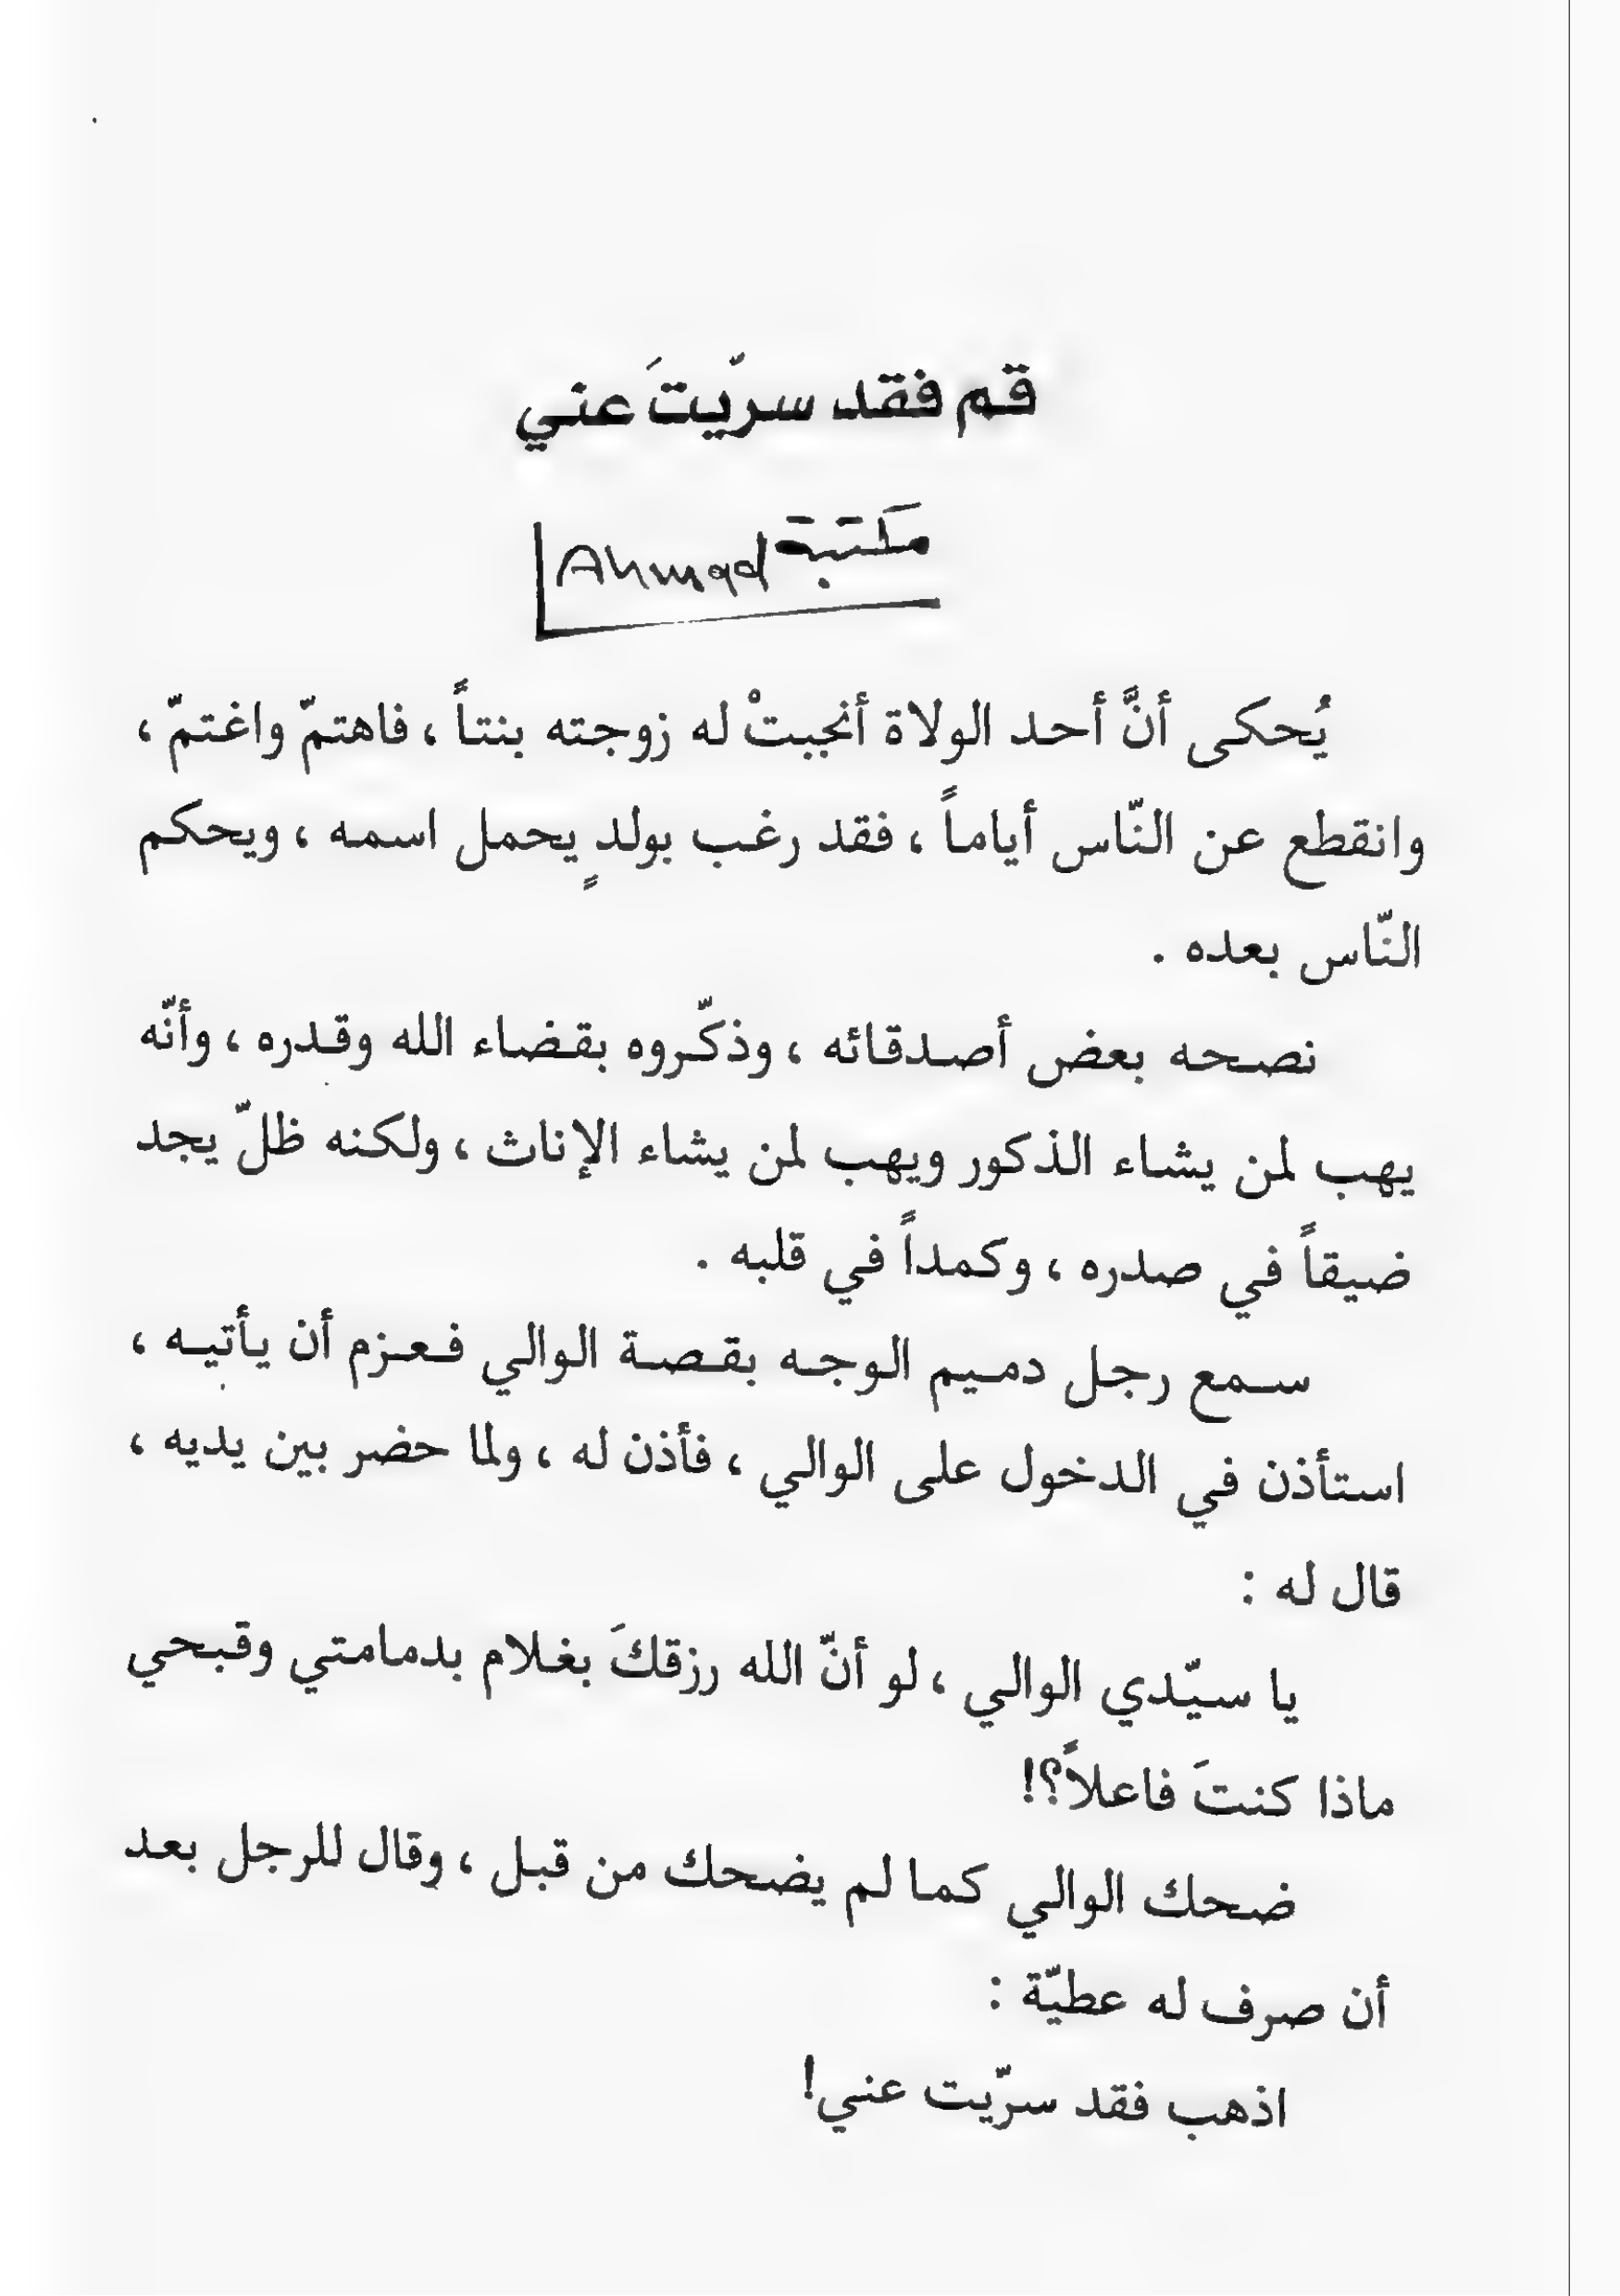 قم فقد سرّيتَ عني
مكتبة Ahmad
يُحكى أنَّ أحد الولاة أنجبتْ له زوجته بنتاً ، فاهتمّ واغتمّ ،
وانقطع عن النّاس أياماً ، فقد رغب بولدٍ يحمل اسمه ، ويحكم
النّاس بعده .
نصحه بعض أصدقائه ، وذكّروه بقضاء الله وقدره ، وأنّه
يهب لمن يشاء الذكور ويهب لمن يشاء الإناث ، ولكنه ظلّ يجد
ضيقاً في صدره ، وكمداً في قلبه .
سمع رجل دميم الوجه بقصة الوالي فعزم أن يأتيه ،
استأذن في الدخول على الوالي ، فأذن له ، ولما حضر بين يديه ،
قال له :
يا سيّدي الوالي ، لو أنّ الله رزقكَ بغلام بدمامتي وقبحي
ماذا كنتَ فاعلاً؟!
ضحك الوالي كما لم يضحك من قبل ، وقال للرجل بعد
أن صرف له عطيّة :
اذهب فقد سرّيت عني!